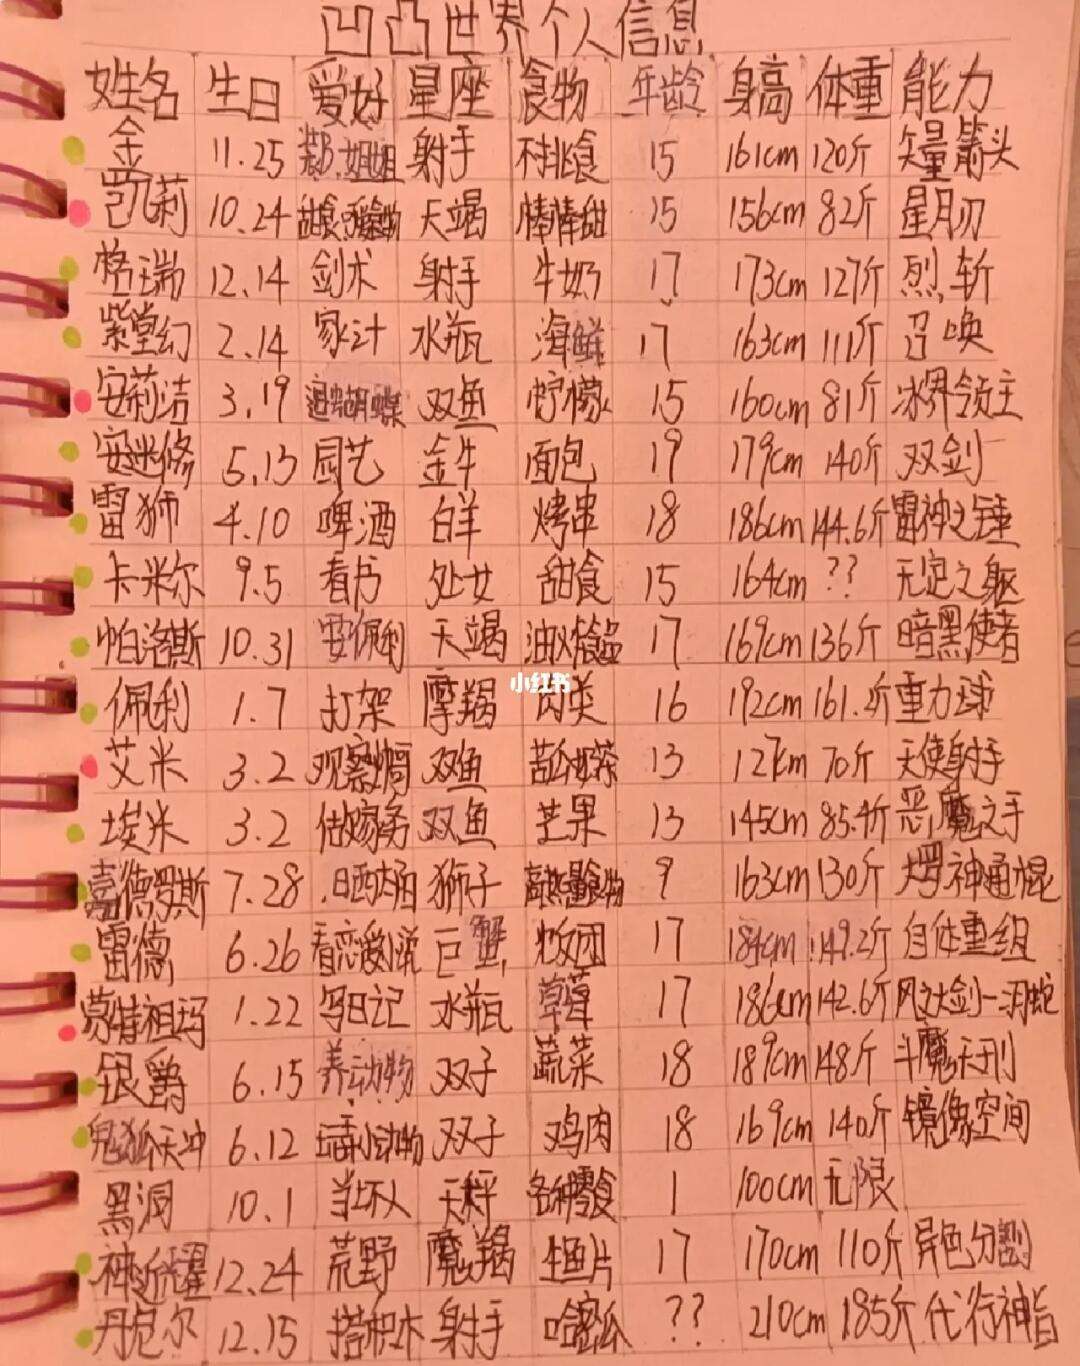 凹凸世界个人信息
姓名 生日 爱好 星座 食物 年龄 身高 体重 能力
金 11.25 姐姐 射手 不挑食 15 161cm 120斤 矢量箭头
凯莉 10.24 甜食 天蝎 棒棒甜 15 156cm 82斤 星月刃
格瑞 12.14 剑术 射手 牛奶 17 173cm 127斤 烈斩
紫堂幻 2.14 家计 水瓶 海鲜 17 163cm 111斤 召唤
安莉洁 3.19 蝴蝶 双鱼 柠檬 15 160cm 81斤 冰界领主
安迷修 5.13 园艺 金牛 面包 19 179cm 140斤 双剑
雷狮 4.10 啤酒 白羊 烤串 18 186cm 144.6斤 雷神之锤
卡米尔 9.5 看书 处女 甜食 15 164cm ?? 无定之躯
帕洛斯 10.31 耍佩利 天蝎 油炸食品 17 169cm 136斤 暗黑使者
佩利 1.7 打架 摩羯 肉类 16 192cm 161.2斤 重力球
小红书
艾米 3.2 观察帅哥 双鱼 苦瓜奶茶 13 127cm 70斤 天使射手
埃米 3.2 做家务 双鱼 芒果 13 145cm 85.4斤 恶魔之手
嘉德罗斯 7.28 晒太阳 狮子 高热量食物 9 163cm 130斤 大罗神通棍
雷德 6.26 看恋爱小说 巨蟹 饭团 17 184cm 149.2斤 自体重组
蒙特祖玛 1.22 写日记 水瓶 草莓 17 186cm 142.6斤 风之大剑一羽蛇
银爵 6.15 养动物 双子 蔬菜 18 189cm 148斤 斗魔天刑
鬼狐天冲 6.12 小动物 双子 鸡肉 18 169cm 140斤 镜像空间
黑洞 10.1 当坏人 天秤 各种零食 1 100cm 无限
神近耀 12.24 荒野 魔羯 生鱼片 17 170cm 110斤 异色分割
丹尼尔 12.15 搭积木 射手 哈密瓜 ?? 210cm 185斤 代行神旨